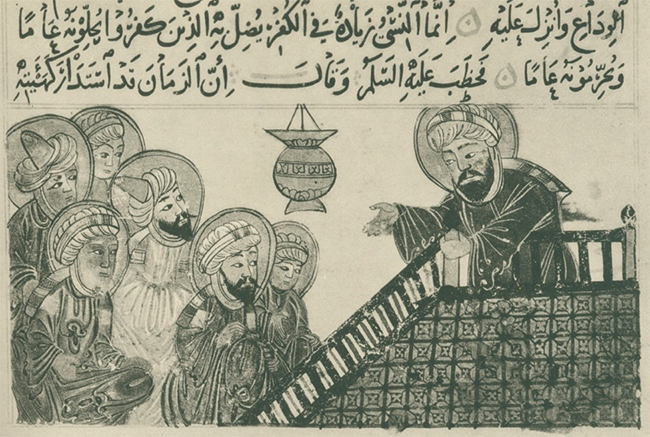 الوداع وانزل عليه انما النسي زيادة في الكفر يضل به الذين كفروا يحلونه عاما
ويحرمونه عاما فخطب عليه السلم وقال ان الزمان قد استدار كهيئته